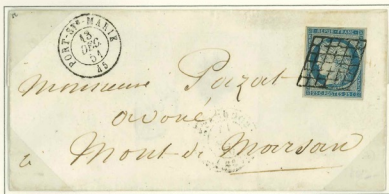 PORT-STE-MARIE
13
DEC
51
45
REPUB. FRANC.
Monsieur Pazat
avoué
à Mont-de-Marsan